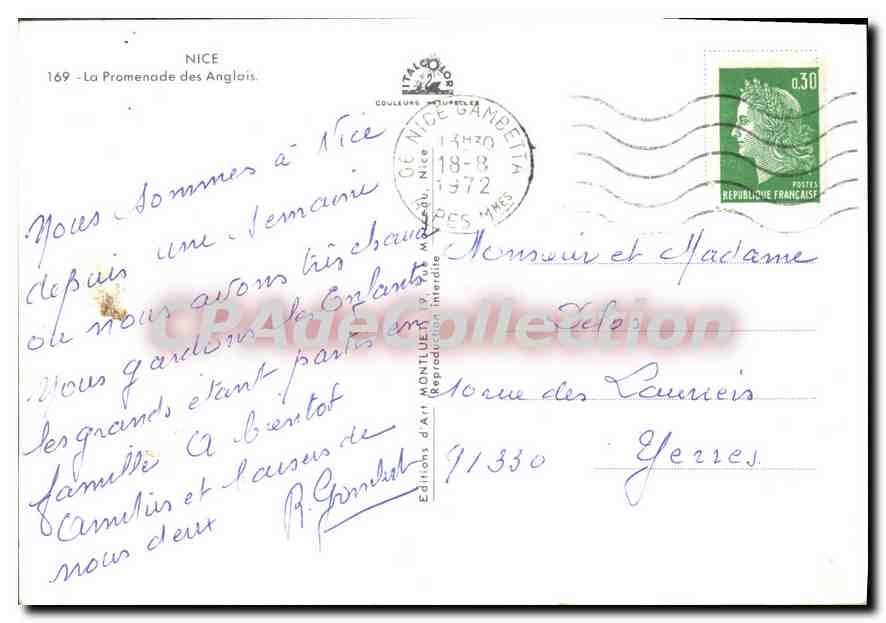 NICE
169 - La Promenade des Anglais.
ITALCOLOR
COULEURS NATURELLES
06 NICE GAMBETTA
13H30
18-8
1972
ALPES MMES
0,30
POSTES
REPUBLIQUE FRANÇAISE
Nous sommes à Nice
depuis une semaine
où nous avons très chaud
Nous gardons les Enfants
les grands étant partis en
famille A bientot
Amitiés et baisers de
nous deux
R.
Editions d'Art MONTLUET, 19, rue Marceau, Nice
Reproduction interdite
Monsieur et Madame
10 rue des Lauriers
91330 Yerres.
CPAdeCollection